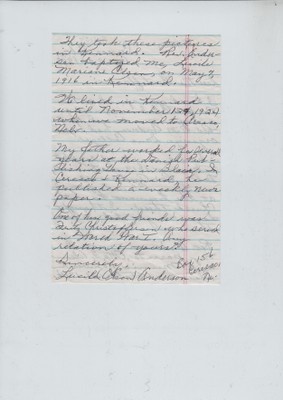 They took these pictures
in Kennard. Rev. Ander-
sen baptized me, Lucile
Mariane Olson, on May 7,
1916 in Kennard.
We lived in Kennard
until November 1st, 1922
when we moved to
Neb.
My father worked for several
years at the Danish Pub-
lishing House in Blair. In
& Kennard he
published a weekly news
paper.
One of his good friends was
Christophersen who served
in World War I. Any
relation of yours?
Sincerely,
Lucile Olson Anderson
Box 156
Ceresco